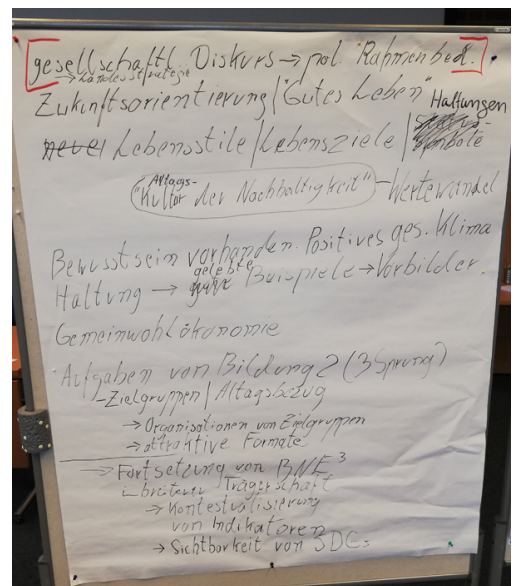 gesellschaftl. Diskurs → pol. Rahmenbed.
→ Landesstrategie
Zukunftsorientierung / "Gutes Leben" Haltungen
neue Lebensstile / Lebensziele /
Alltags-
"Kultur der Nachhaltigkeit" - Wertewandel
Bewusstsein vorhanden. Positives ges. Klima
gelebte
Haltung → gute Beispiele → Vorbilder.
Gemeinwohlökonomie
Aufgaben von Bildung 2 (3Sprung)
- Zielgruppen / Altagsbezug
→ Organisationen von Zielgruppen
→ attraktive Formate
→ Fortsetzung von BNE³
in breiterer Trägerschaft
→ Kontextualisierung
von Indikatoren
→ Sichtbarkeit von SDGs